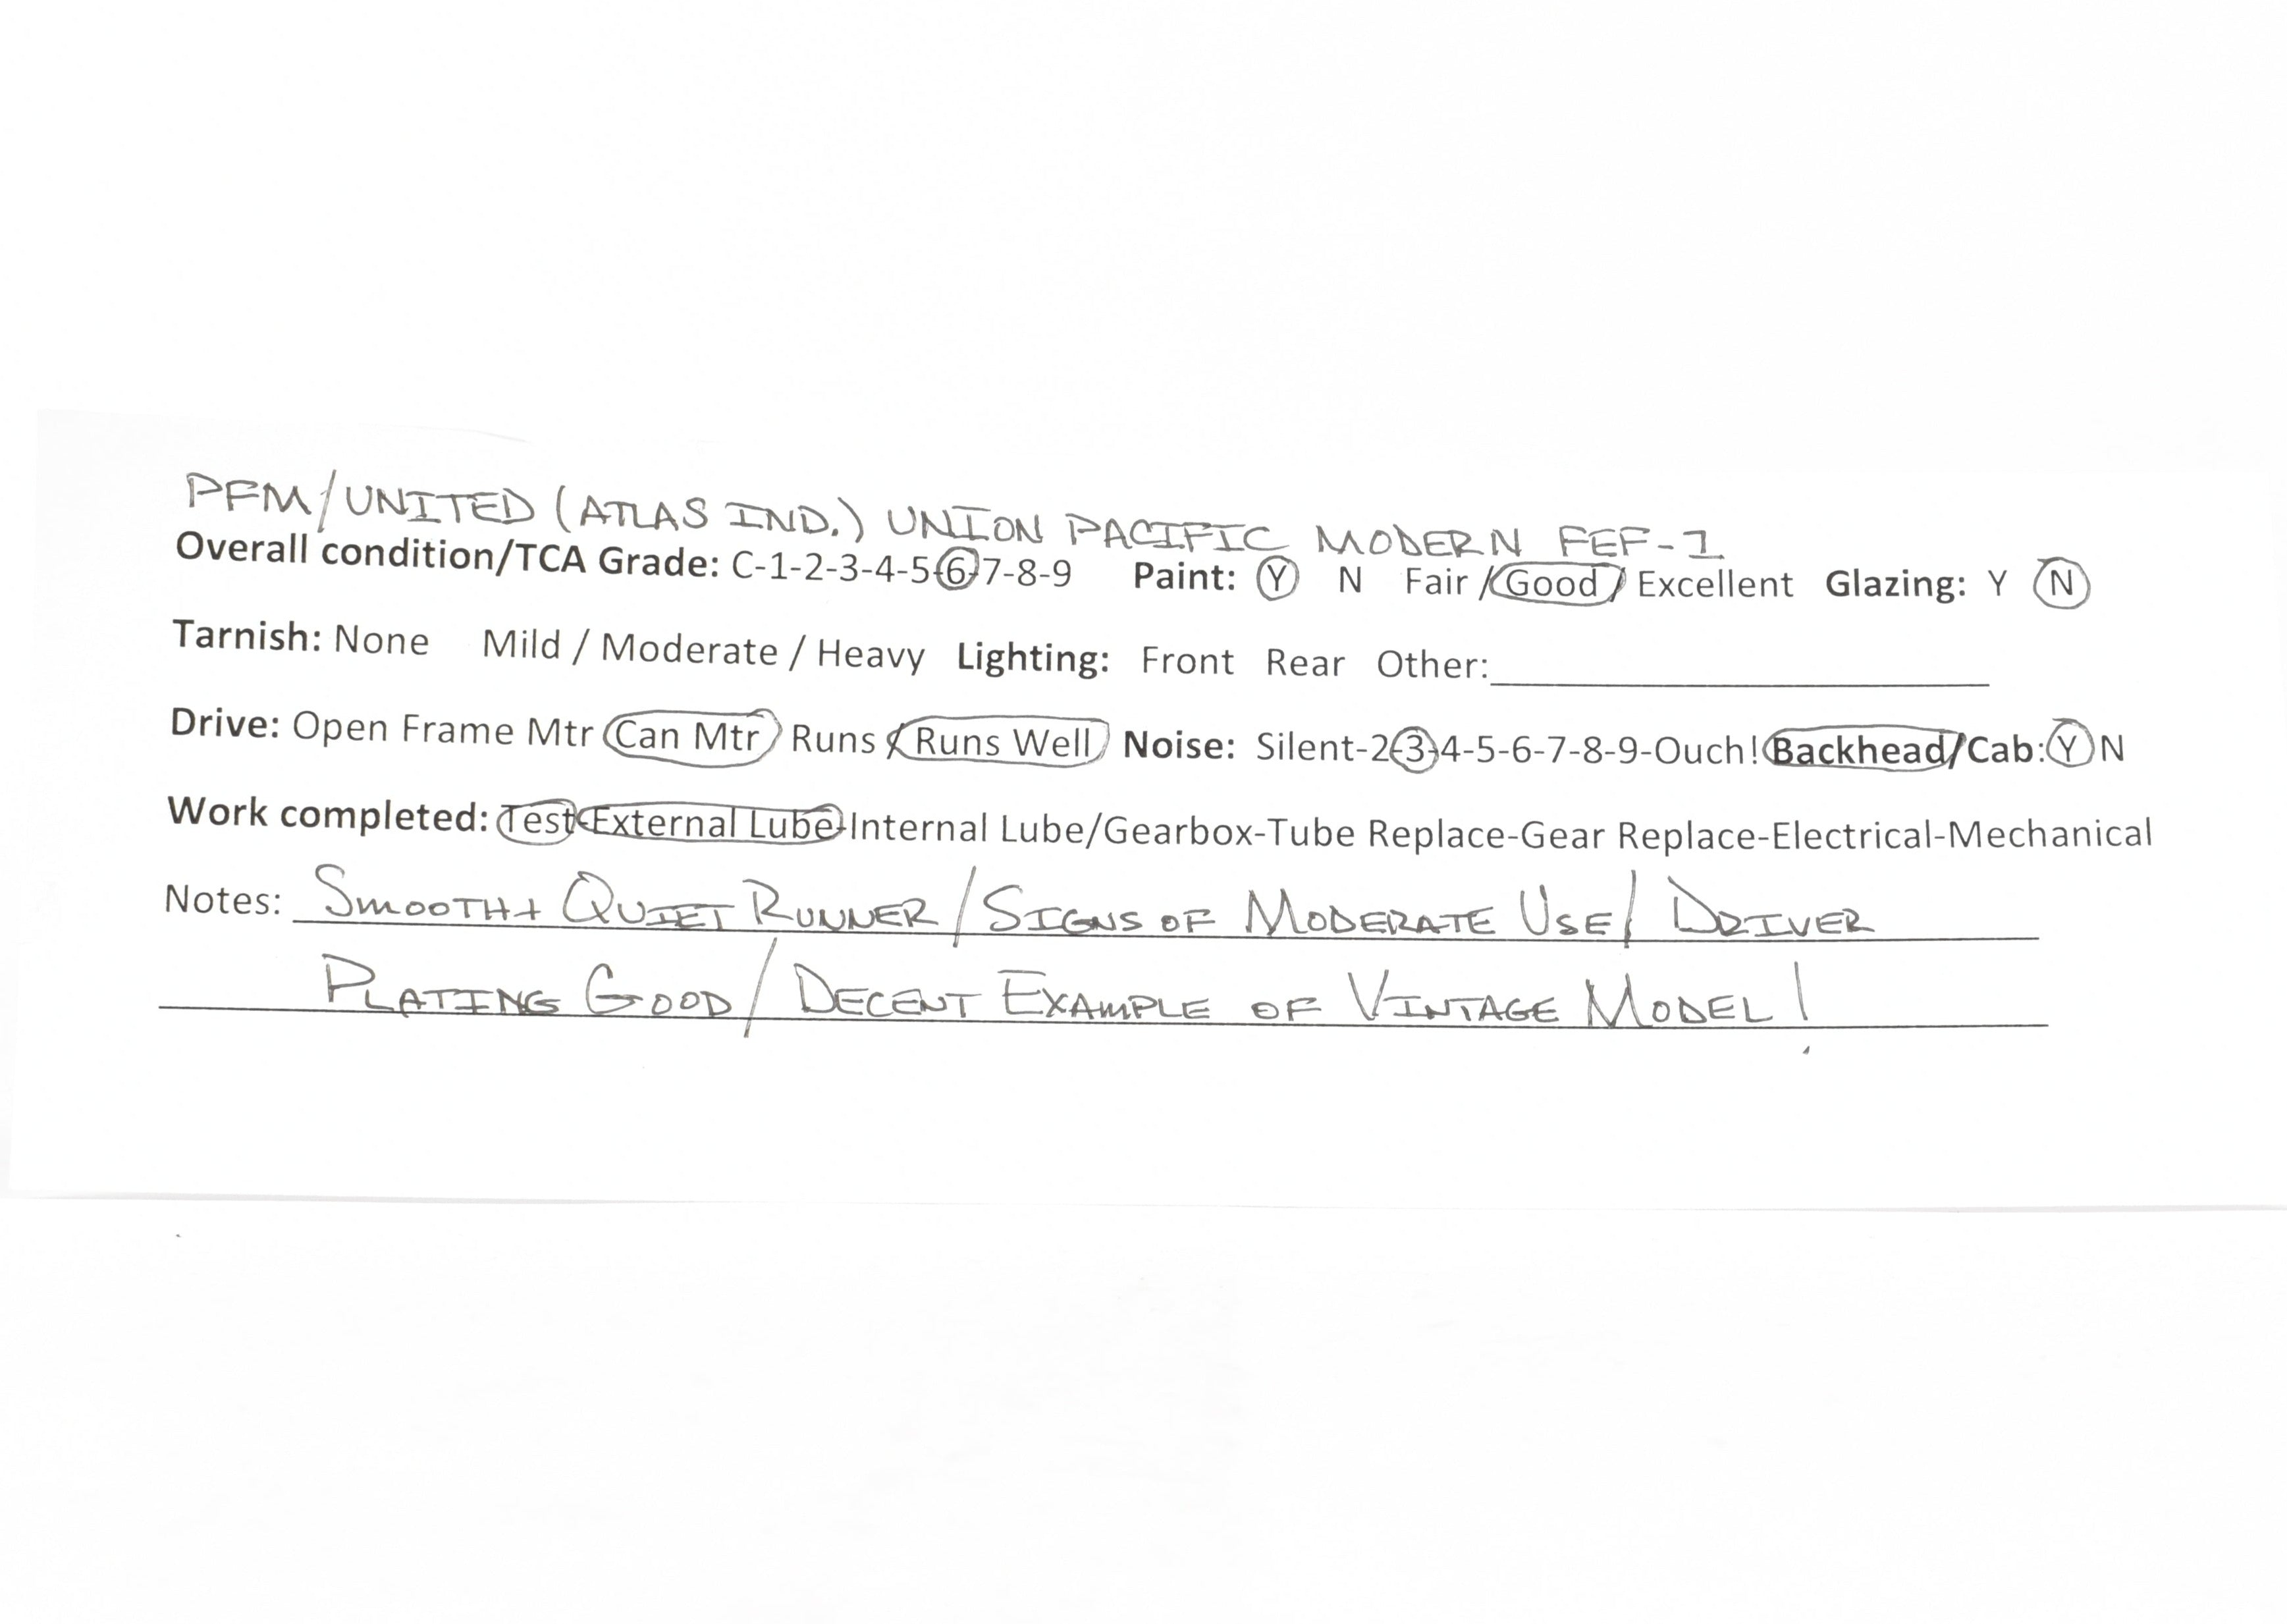 PFM/UNITED (ATLAS IND.) UNION PACIFIC MODERN FEF-1
Overall condition/TCA Grade: C-1-2-3-4-5-6-7-8-9 Paint: Y N Fair / Good / Excellent Glazing: Y N
Tarnish: None Mild / Moderate / Heavy Lighting: Front Rear Other:
Drive: Open Frame Mtr Can Mtr Runs / Runs Well Noise: Silent-2-3-4-5-6-7-8-9-Ouch! Backhead/Cab: Y N
Work completed: Test-External Lube-Internal Lube/Gearbox-Tube Replace-Gear Replace-Electrical-Mechanical
Notes: SMOOTH + QUIET RUNNER / SIGNS OF MODERATE USE / DRIVER
PLATING GOOD / DECENT EXAMPLE OF VINTAGE MODEL!